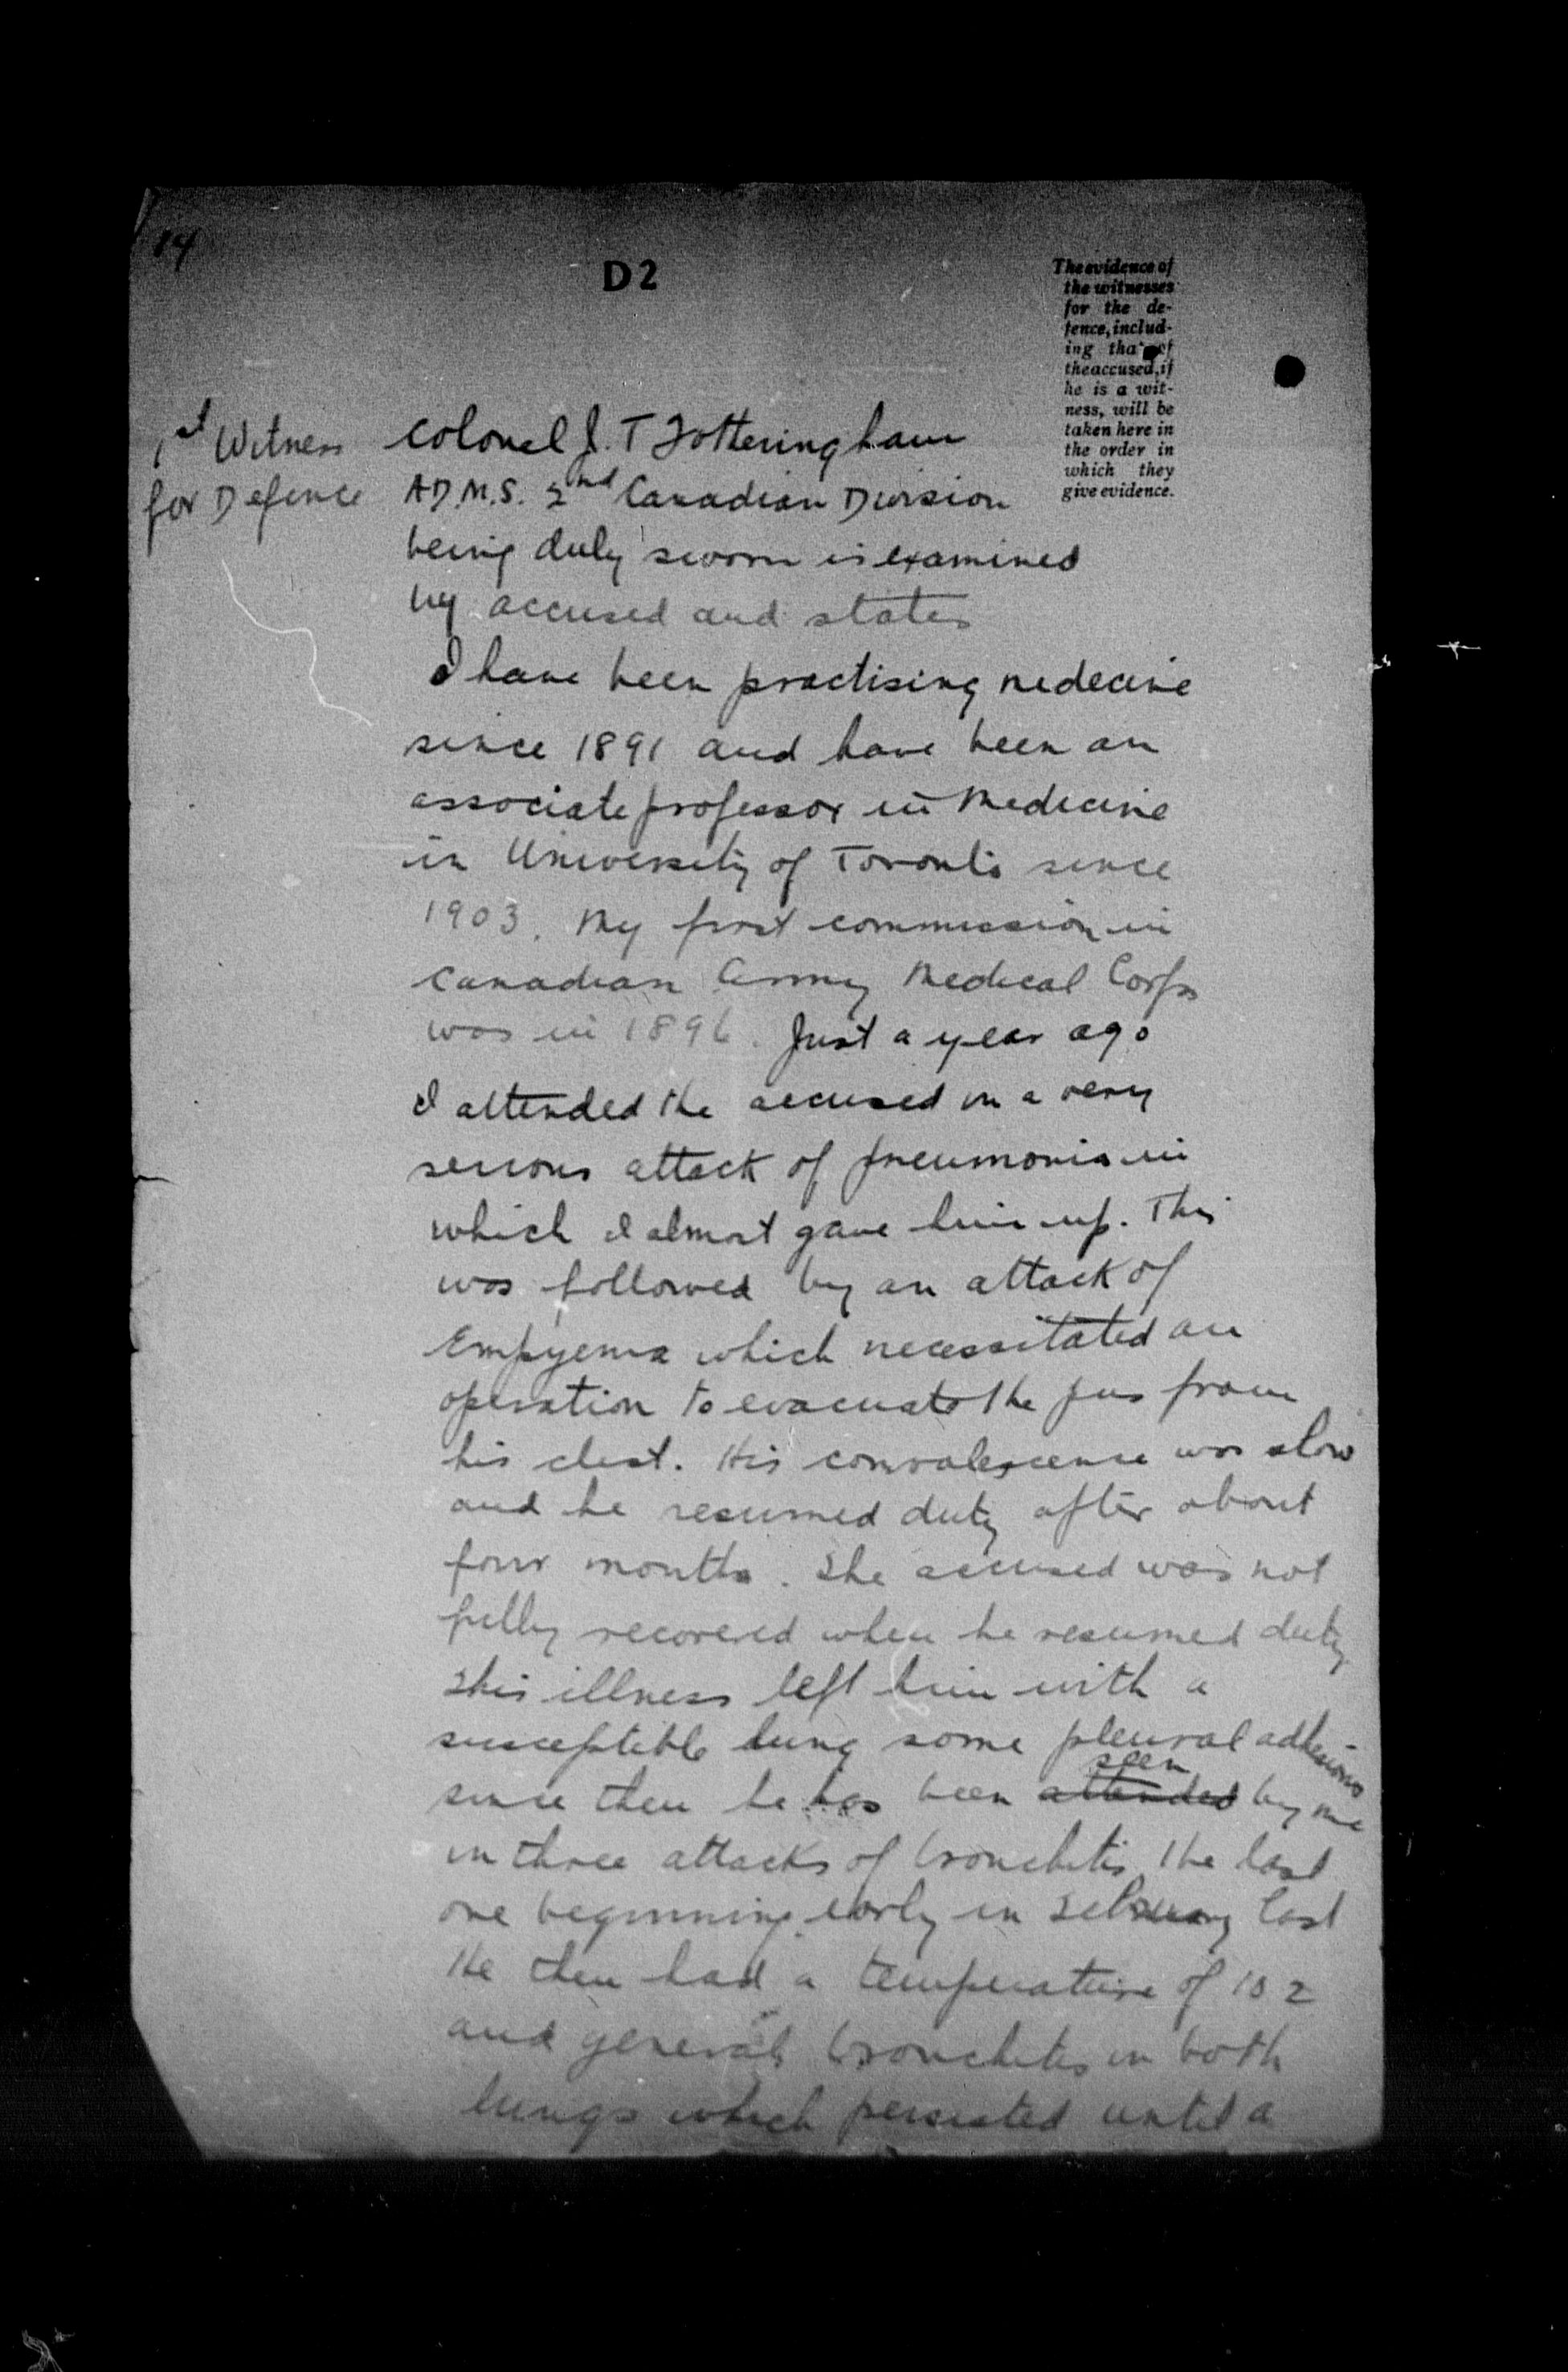 14
D2
The evidence of
the witnesses
for the de-
fence, includ-
ing that of
the accused, if
he is a wit-
ness, will be
taken here in
the order in
which they
give evidence.
1st Witness
for Defence
Colonel J. T Fotheringham
A.D.M.S. 2nd Canadian Division
being duly sworn is examined
by accused and states
I have been practising medecine
since 1891 and have been an
associate professor in Medicine
in University of Toronto since
1903. My first commission in
Canadian Army Medical Corps
was in 1896. Just a year ago
I attended the accused in a very
serious attack of pneumonia in
which I almost gave him up. This
was followed by an attack of
Empyema which necessitated an
operation to evacuate the pus from
his chest. His convalescence was slow
and he resumed duty after about
four months. The accused was not
fully recovered when he resumed duty
This illness left him with a
susceptible lung some pleural adhesions
since then he has been attended seen by me
in three attacks of bronchitis, the last
one beginning early in February last
He then had a temperature of 102
and general bronchitis in both
lungs which persisted until a